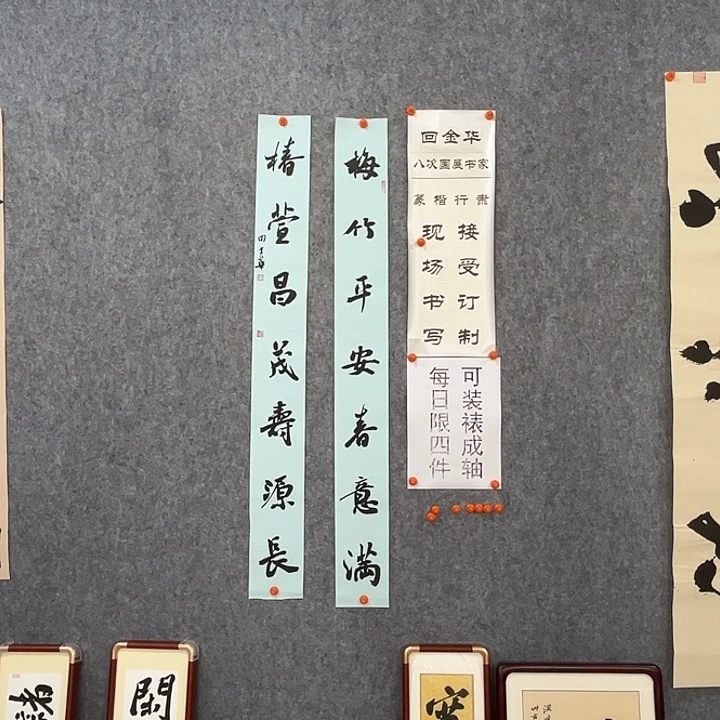 梅竹平安春意满
椿萱昌茂壽源長
回金华
八次国展书家
篆楷行隶
接受订制
现场书写
可装裱成轴
每日限四件
閑